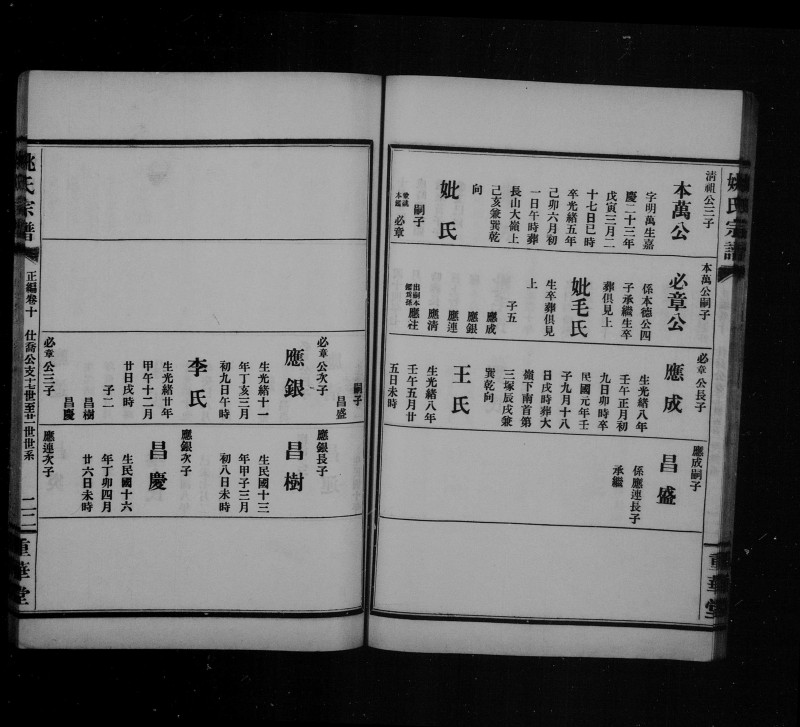 姚氏宗譜
清祖公三子
本萬公
字明萬生嘉
慶二十三年
戊寅三月二
十七日巳時
卒光緒五年
己卯六月初
一日午時葬
長山大嶺上
己亥兼巽乾
向
妣氏
嗣子
必章
本萬公嗣子
必章公
係本德公四
子承繼生卒
葬俱見上
妣毛氏
生卒葬俱見
上
子五
應成
應銀
應連
應清
應注
必章公長子
應成
生光緒八年
壬午正月初
九日卯時卒
民國元年壬
子九月十八
日戌時葬大
嶺下南首第
三塚辰戌兼
巽乾向
王氏
生光緒八年
壬午五月廿
五日未時
嗣子
昌盛
應成嗣子
昌盛
係應連長子
承繼
重華堂
必章公次子
應銀
生光緒十一
年丁亥三月
初九日午時
李氏
生光緒廿年
甲午十二月
廿日戌時
子二
昌樹
昌慶
必章公三子
應銀長子
昌樹
生民國十三
年甲子三月
初八日未時
應銀次子
昌慶
生民國十六
年丁卯四月
廿六日未時
應連次子
姚氏宗譜
正編卷十
仕喬公支十七世至廿一世世系
重華堂